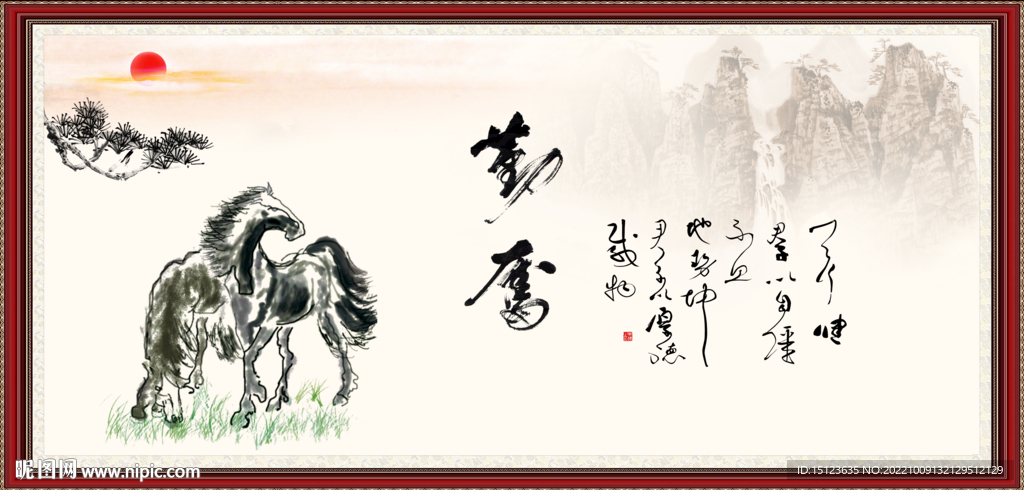 勤奮
天行健
君子以自強
不息
地勢坤
君子以厚德
載物
昵图网 www.nipic.com
ID:15123635 NO:20221009132129512129